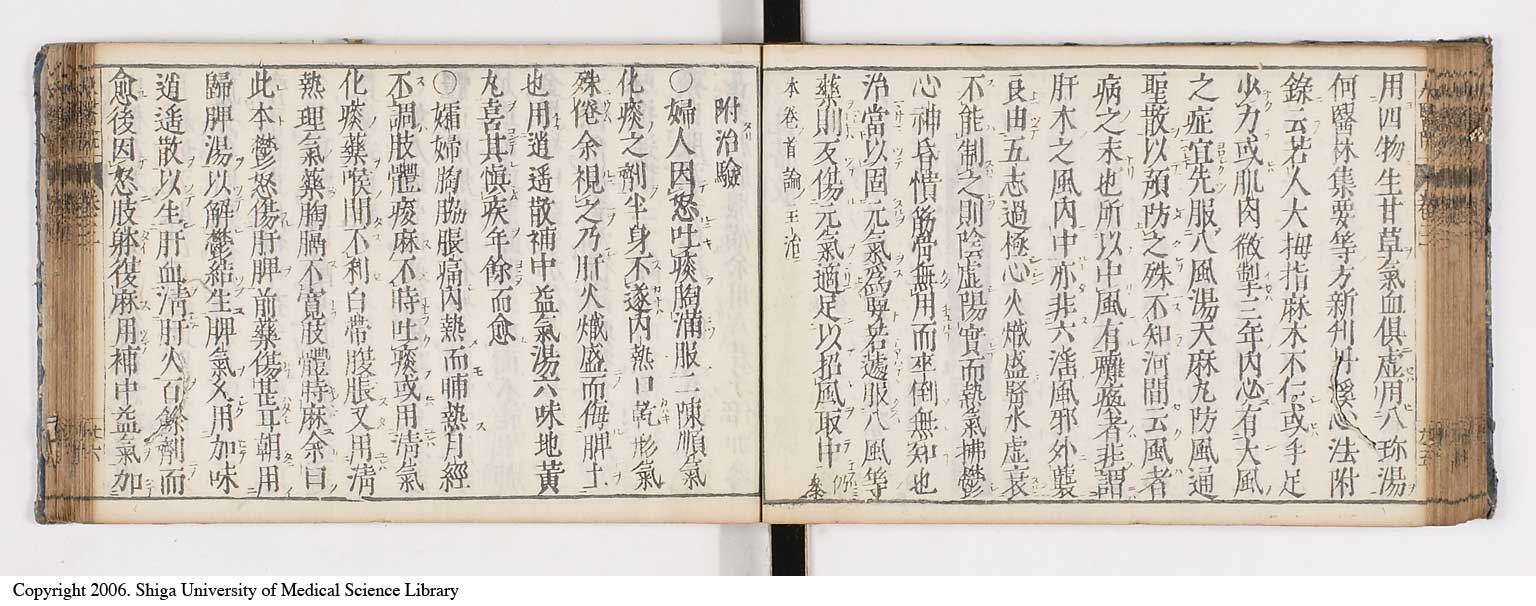 用四物生甘草氣血俱虛用八珍湯
何醫林集要等方新刊丹溪心法附
錄云若人大拇指麻木不仁或手足
少力或肌肉微掣三年内必有大風
之症宜先服八風湯天麻丸防風通
聖散以預防之殊不知河間云風者
病之末也所以中風有癱瘓者非謂
肝木之風内中亦非六淫風邪外襲
良由五志過極心火熾盛腎水虛衰
不能制之則陰虛陽實而熱氣拂鬱
心神昏憒筋骨無用而卒倒無知也
治當以固元氣爲學若遽服八風等
藥則反傷元氣適足以招風取中
本卷首論王治
附治驗
〇婦人因怒吐痰胸滿服二陳順氣
化痰之劑半身不遂内熱口乾形氣
殊倦余視之乃肝火熾盛而侮脾土
也用逍遥散補中益氣湯六味地黄
丸喜其慎疾年餘而愈
〇孀婦胸脇脹痛内熱而晡熱月經
不調肢體痠麻不時吐痰或用清氣
化痰藥喉間不利白帶腹脹又用清
熱理氣藥胸膈不寬肢體時麻余曰
此本鬱怒傷肝脾前藥傷甚耳朝用
歸脾湯以解鬱結生脾氣夕用加味
逍遥散以生肝血清肝火百餘劑而
愈後因怒肢躰復麻用補中益氣加
Copyright 2006. Shiga University of Medical Science Library